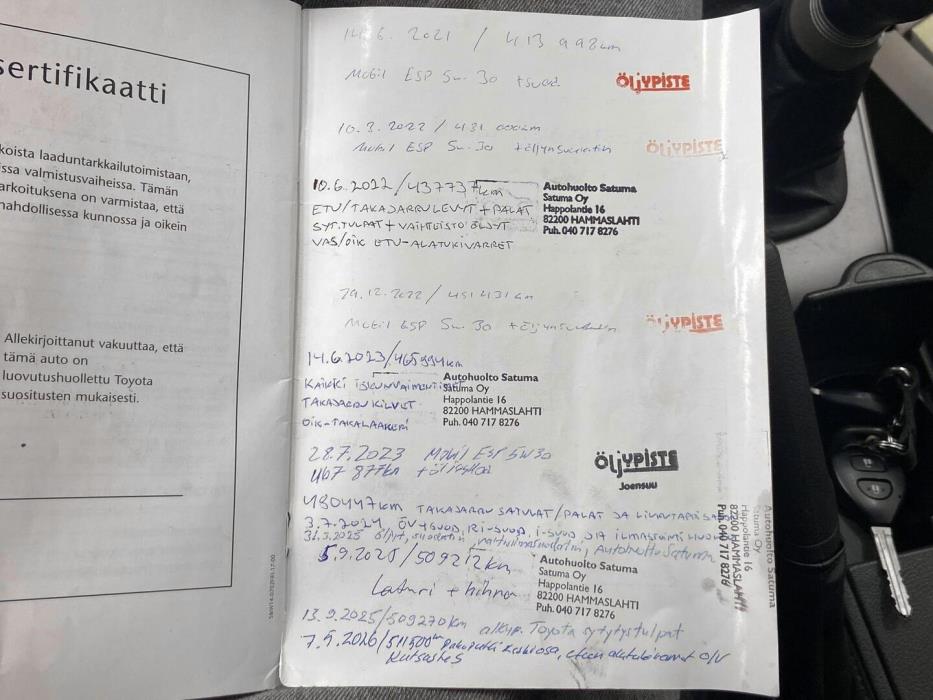 sertifikaatti
koista laaduntarkkailutoimistaan,
issa valmistusvaiheissa. Tämän
arkoituksena on varmistaa, että
mahdollisessa kunnossa ja oikein
Allekirjoittanut vakuuttaa, että
tämä auto on
luovutushuollettu Toyota
suositusten mukaisesti.
14.6. 2021 / 413 992km
Mobil ESP 5w. 30 +suod.
ÖljYPISTE
10.3.2022 / 431 000km
Mobil ESP 5w.30 +öljynsuodatin
ÖljYPISTE
10.6.2022/437737km
ETU/TAKAJARRULEVYT + PALAT
SYT.TULPAT + VAIHTEISTO ÖLJYT
VAS/OIK ETU-ALATUKIVARRET
Autohuolto Satuma
Satuma Oy
Happolantie 16
82200 HAMMASLAHTI
Puh. 040 717 8276
29.12.2022 / 451 431 km
Mobil ESP 5w.30 +öljynsuodatin
ÖljYPISTE
14.6.2023/465994km
KAIKKI ISKUNVAIMENTIMET
TAKAJARRUKILVET
OIK-TAKALAAKERI
Autohuolto Satuma
Satuma Oy
Happolantie 16
82200 HAMMASLAHTI
Puh. 040 717 8276
28.7.2023 Mobil ESP 5W30
467 877km
ÖljYPISTE
Joensuu
480447km TAKAJARRU SATULAT/PALAT JA LIUKUTAPIT
3.7.2024 ÖV+SUOD, RI-SUOD, I-SUOD JA ILMASTOINTIHUOLTO
31.3.2025 öljyt, suodatin, raitisilmasuodatin, Autohuolto Satuma
Autohuolto Satuma
Satuma Oy
Happolantie 16
82200 HAMMASLAHTI
Puh. 040 717 8276
5.9.2025/509212km
Laturi + hihna
Autohuolto Satuma
Satuma Oy
Happolantie 16
82200 HAMMASLAHTI
Puh. 040 717 8276
13.9.2025/509270km alkup. Toyota sytytystulpat
7.5.2026/511500km pakoputki keskiosa, eteen alatukivarret O/V
Katsastus